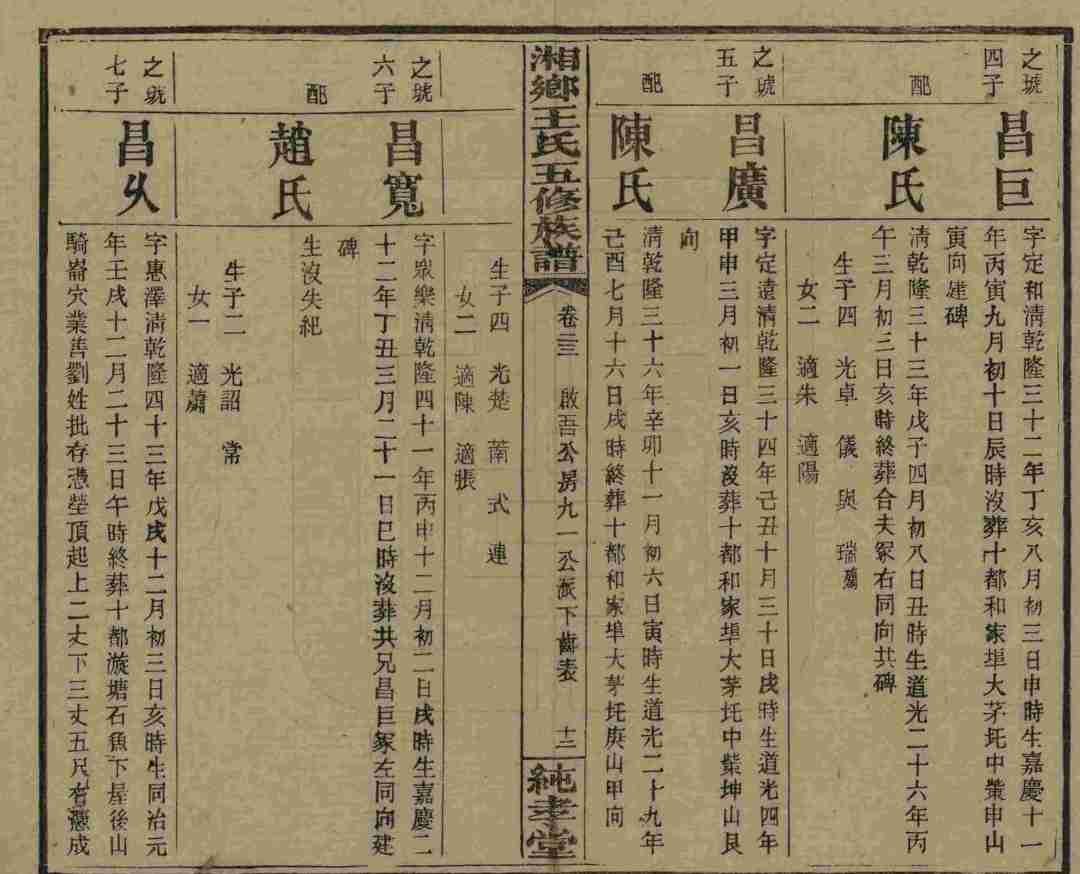 之號
四子
昌巨
字定和清乾隆三十二年丁亥八月初三日申時生嘉慶十一
年丙寅九月初十日辰時沒葬十都和家埠大茅圫中塋申山
寅向建碑
配
陳氏
清乾隆三十三年戊子四月初八日丑時生道光二十六年丙
午三月初三日亥時終葬合夫冢右同向共碑
生子四 光卓 儀 與 瑞
女二 適朱 適陽
之號
五子
昌廣
字定遠清乾隆三十四年己丑十月三十日戌時生道光四年
甲申三月初一日亥時沒葬十都和家埠大茅圫中塋坤山艮
向
配
陳氏
清乾隆三十六年辛卯十一月初六日寅時生道光二十九年
己酉七月十六日戌時終葬十都和家埠大茅圫庚山甲向
湘鄉王氏五修族譜
卷三 啟吾公房九一公派下齒表 十三
純孝堂
生子四 光楚 蘭 式 連
女二 適陳 適張
之號
六子
昌寬
字眾樂清乾隆四十一年丙申十二月初二日戌時生嘉慶二
十二年丁丑三月二十一日巳時沒葬共兄昌巨冢左同向建
碑
配
趙氏
生沒失紀
生子二 光詔 常
女一 適蕭
之號
七子
昌久
字惠澤清乾隆四十三年戊戌十二月初三日亥時生同治元
年壬戌十二月二十三日午時終葬十都漩塘石魚下屋後山
騎崙穴業善劉姓批存憑塋頂起上二丈下三丈五尺右憑成